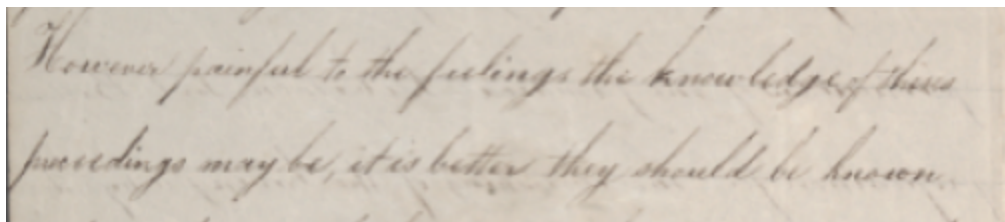 However painful to the feelings the knowledge of these
proceedings may be, it is better they should be known